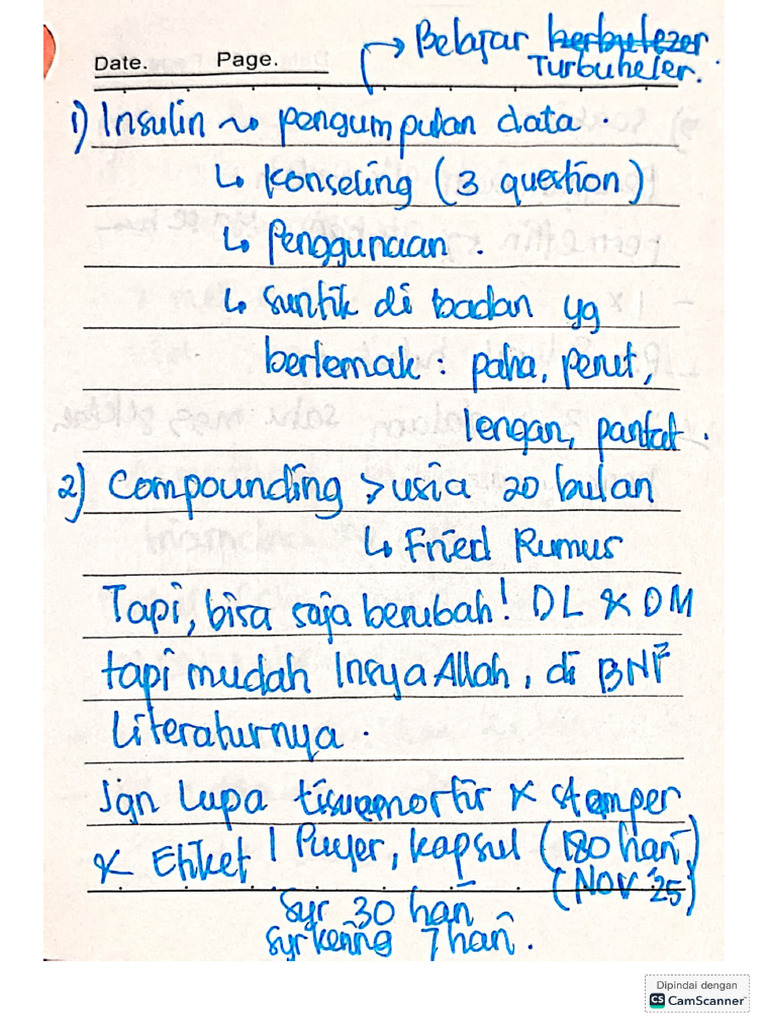 Belajar berbulezer
Turbuheler.
Date. Page.
1) Insulin ~> pengumpulan data.
↳ Konseling (3 question)
↳ Penggunaan.
↳ suntik di badan yg
berlemak: paha, perut,
lengan, pantat.
2) Compounding > usia 20 bulan
↳ Fried Rumus
Tapi, bisa saja berubah! DL & DM
tapi mudah Insya Allah, di BNF
Literaturnya.
Jgn Lupa tisue mortir & stamper
& Etiket | Puyer, kapsul (180 hari)
(Nov '25)
Syr 30 hari
Syr kering 7 hari.
Dipindai dengan
CS CamScanner